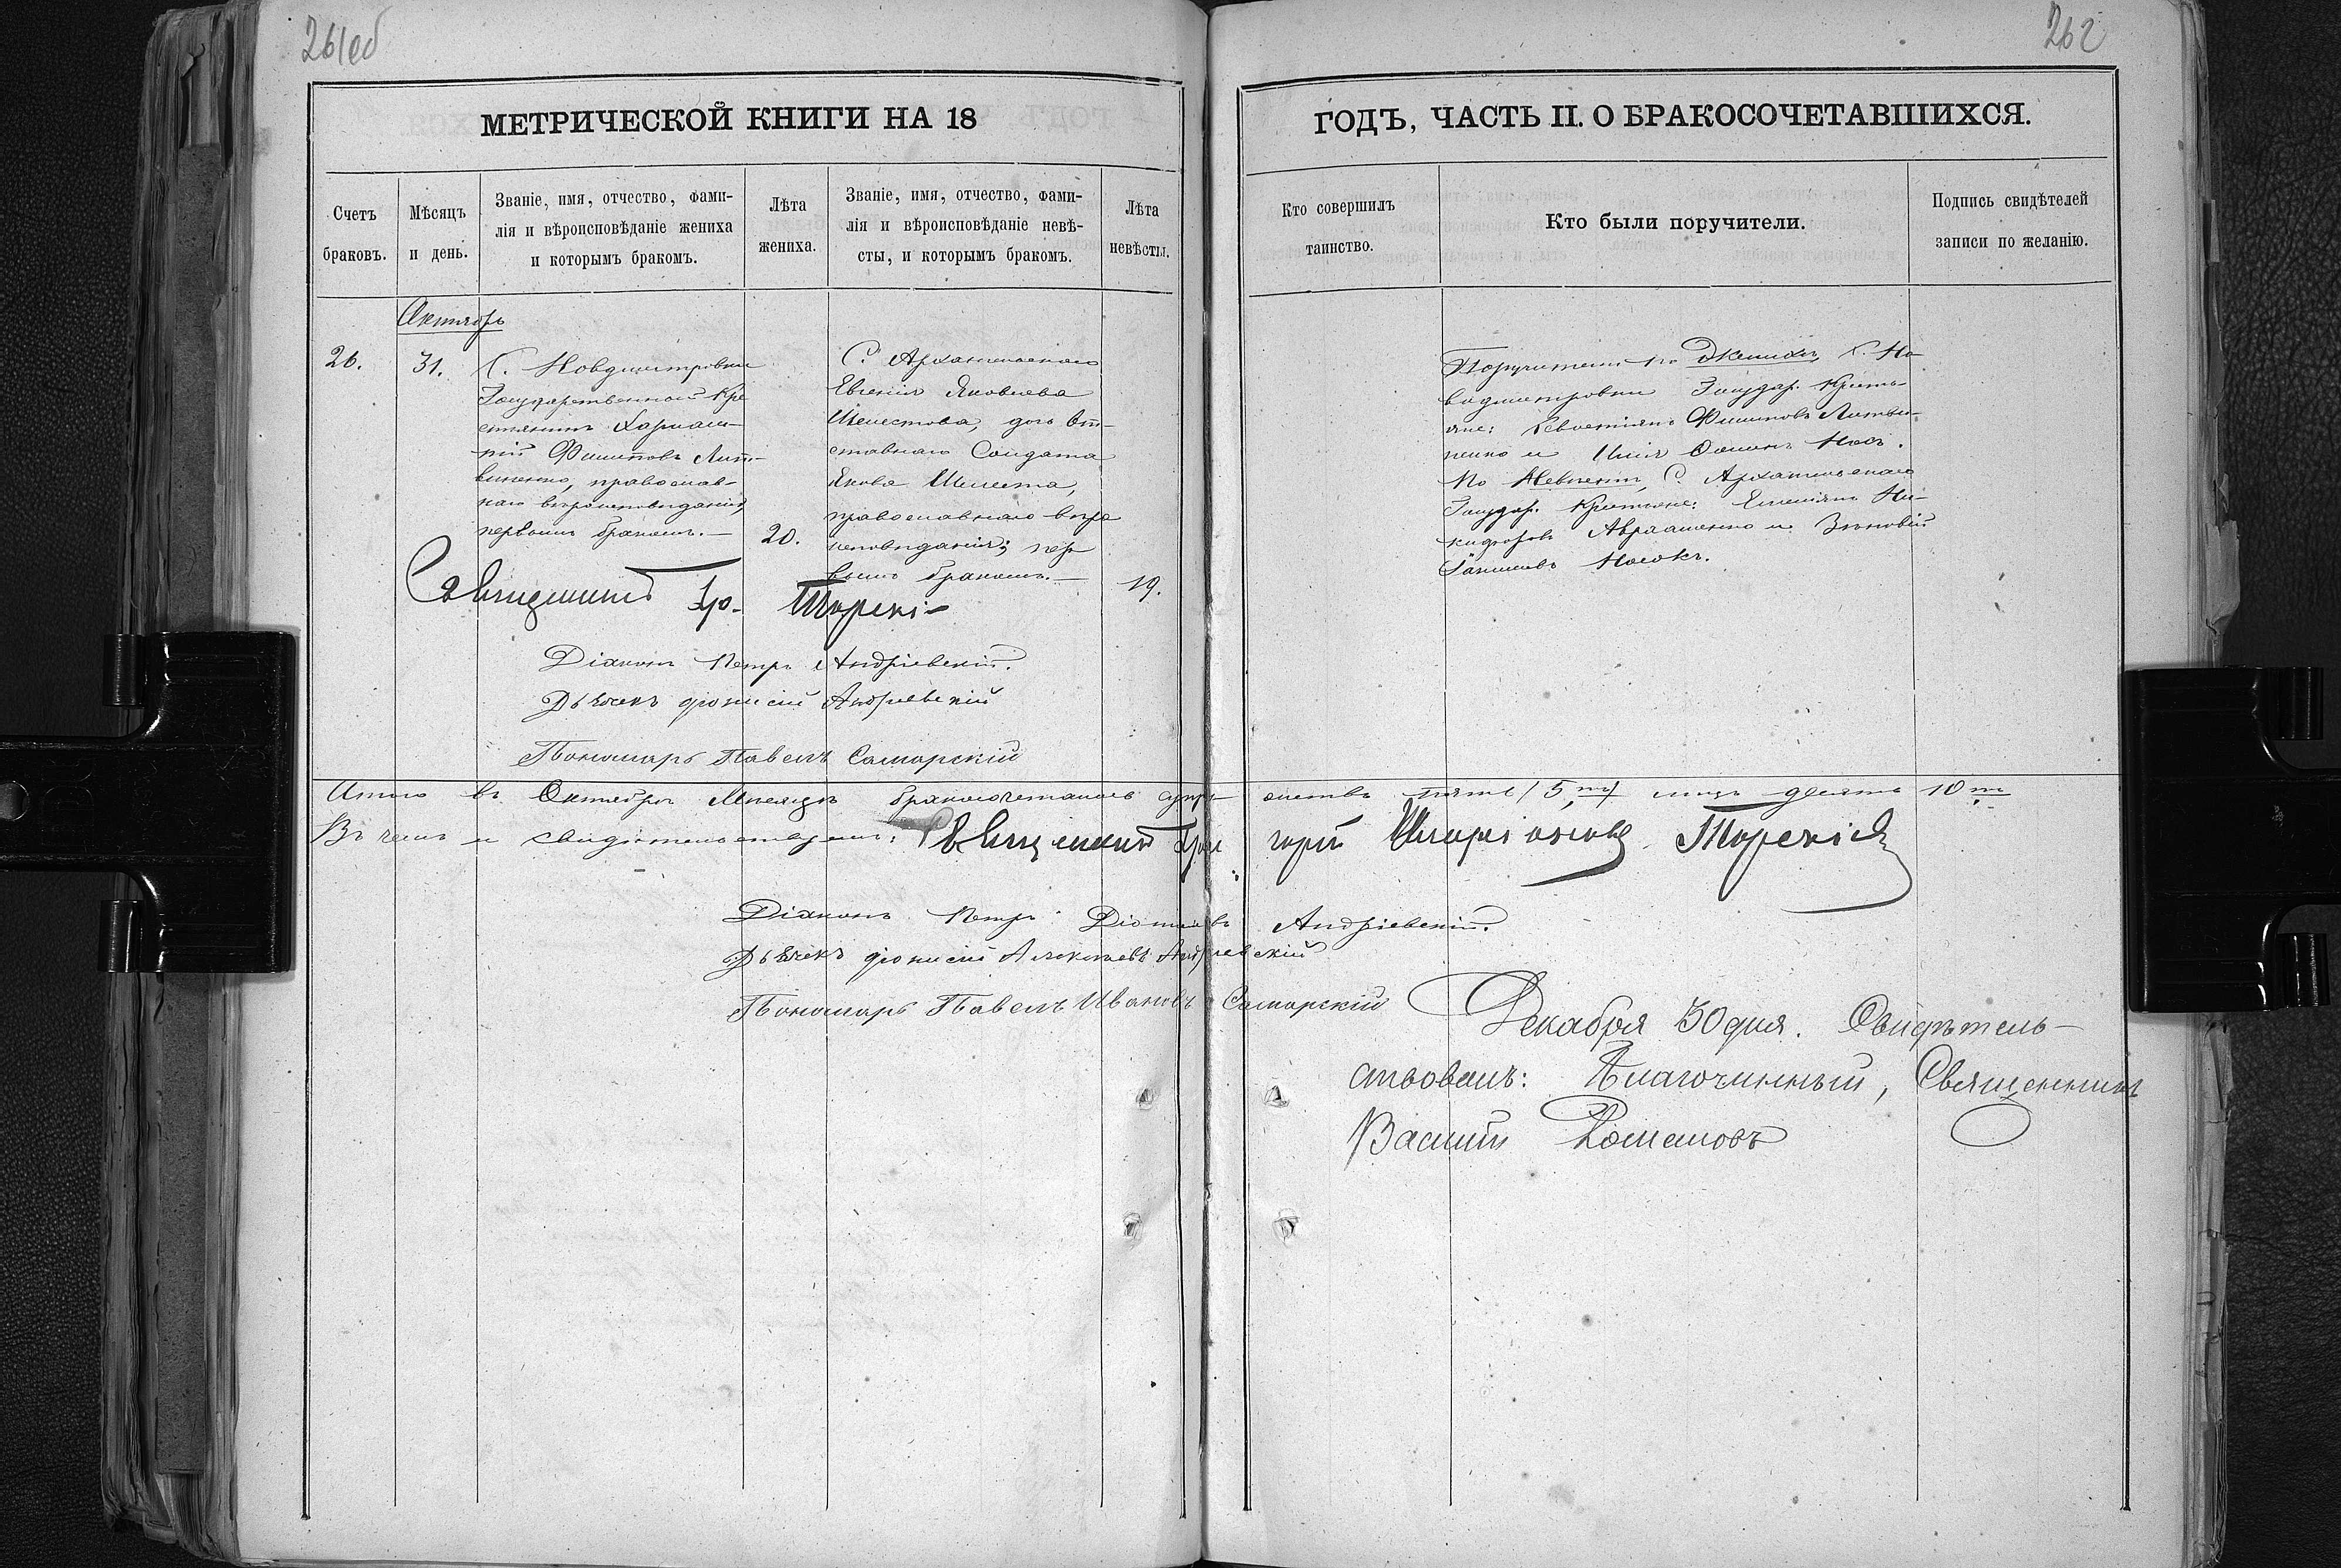 261об
262
МЕТРИЧЕСКОЙ КНИГИ НА 18
ГОДЪ, ЧАСТЬ II. О БРАКОСОЧЕТАВШИХСЯ.
Счетъ
браковъ.
Мѣсяцъ
и день.
Званіе, имя, отчество, фами-
лія и вѣроисповѣданіе жениха
и которымъ бракомъ.
Лѣта
жениха.
Званіе, имя, отчество, фами-
лія и вѣроисповѣданіе невѣ-
сты, и которымъ бракомъ.
Лѣта
невѣсты.
Кто совершилъ
таинство.
Кто были поручители.
Подпись свидѣтелей
записи по желанію.
Октябрь
26.
31.
С. Новдмитровки
Государственный Кре
стьянинъ Харлам-
пій Филиповъ Лит-
виненко, православ-
наго вѣроисповѣданія,
первымъ бракомъ.—
20.
С. Архангельскаго
Евгенія Яковлева
Шелестова, дочь От-
ставнаго Солдата
Якова Шелеста,
православнаго вѣро
исповѣданія; пер
вымъ бракомъ.—
19.
Поручители по Женихѣ, С. Но
водмитровки Государ. Кресть-
яне: Севастіянъ Филиповъ Литви-
ненко и Илія Носъ.
По Невѣстѣ, С. Архангельскаго
Государ. Крестьяне: Емеліянъ Ни-
кифоровъ Авраменко и Зѣновій
Носокъ.
Священникъ Гр. Торскі
Діаконъ Петръ Андріевскій.
Дьячекъ Діонисій Андріевскій
Пономарь Павелъ Самарскій
Итого въ Октябрѣ Мѣсяцѣ бракосочетаномъ супру жествъ пять (5ть) лицъ десять 10ть
Въ чемъ и свидѣтельствуемъ: Священникъ Гри горій Торскій
Діаконъ Петръ Андріевскій.
Дьячекъ Діонисій Алексѣевъ Андріевскій
Пономарь Павелъ Ивановъ Самарскій
Декабря 30 дня. Свидѣтель-
ствовалъ: Благочинный, Священникъ
Василій Романовъ